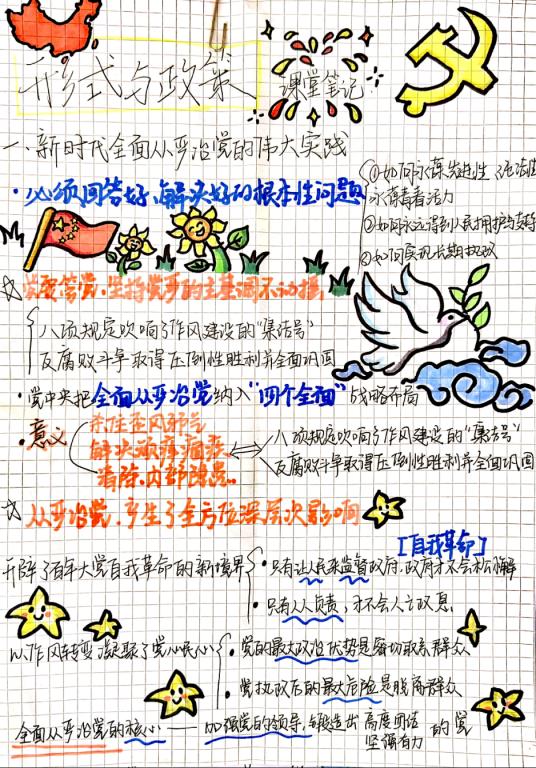 形式与政策
课堂笔记
一、新时代全面从严治党的伟大实践
·必须回答好、解决好的根本性问题
①如何永葆先进性
永葆青春活力
②如何永远得到人民拥护与支持
③如何实现长期执政
党要管党,坚持严的主基调不动摇
八项规定吹响了作风建设的“集结号”
反腐败斗争取得压倒性胜利并全面巩固
·党中央把全面从严治党纳入“四个全面”战略布局
·意义
刹住歪风邪气
解决顽瘴痼疾
清除党内部隐患..
八项规定吹响了作风建设的“集结号”
反腐败斗争取得压倒性胜利并全面巩固
从严治党,产生了全方位深层次影响
[自我革命]
开辟了百年大党自我革命的新境界
·只有让人民来监督政府,政府才不会松懈
·只有人人负责,才不会人亡政息.
以作风转变凝聚了党心民心
·党的最大政治优势是密切联系群众
·党执政后的最大危险是脱离群众
全面从严治党的核心——加强党的领导,锻造出高度团结 坚强有力的党